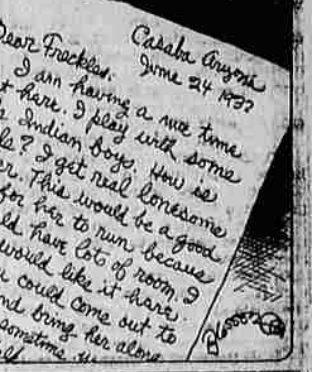 Casaba Aryoni
June 24 1937
Dear Freckles.
I am having a nice time
here. I play with some
Indian boys. How is
? I get real lonesome
er. This would be a good
for her to run becaus
ld have lots of room. I
would like it hare
u could come out to
nd bring her alone
sometime